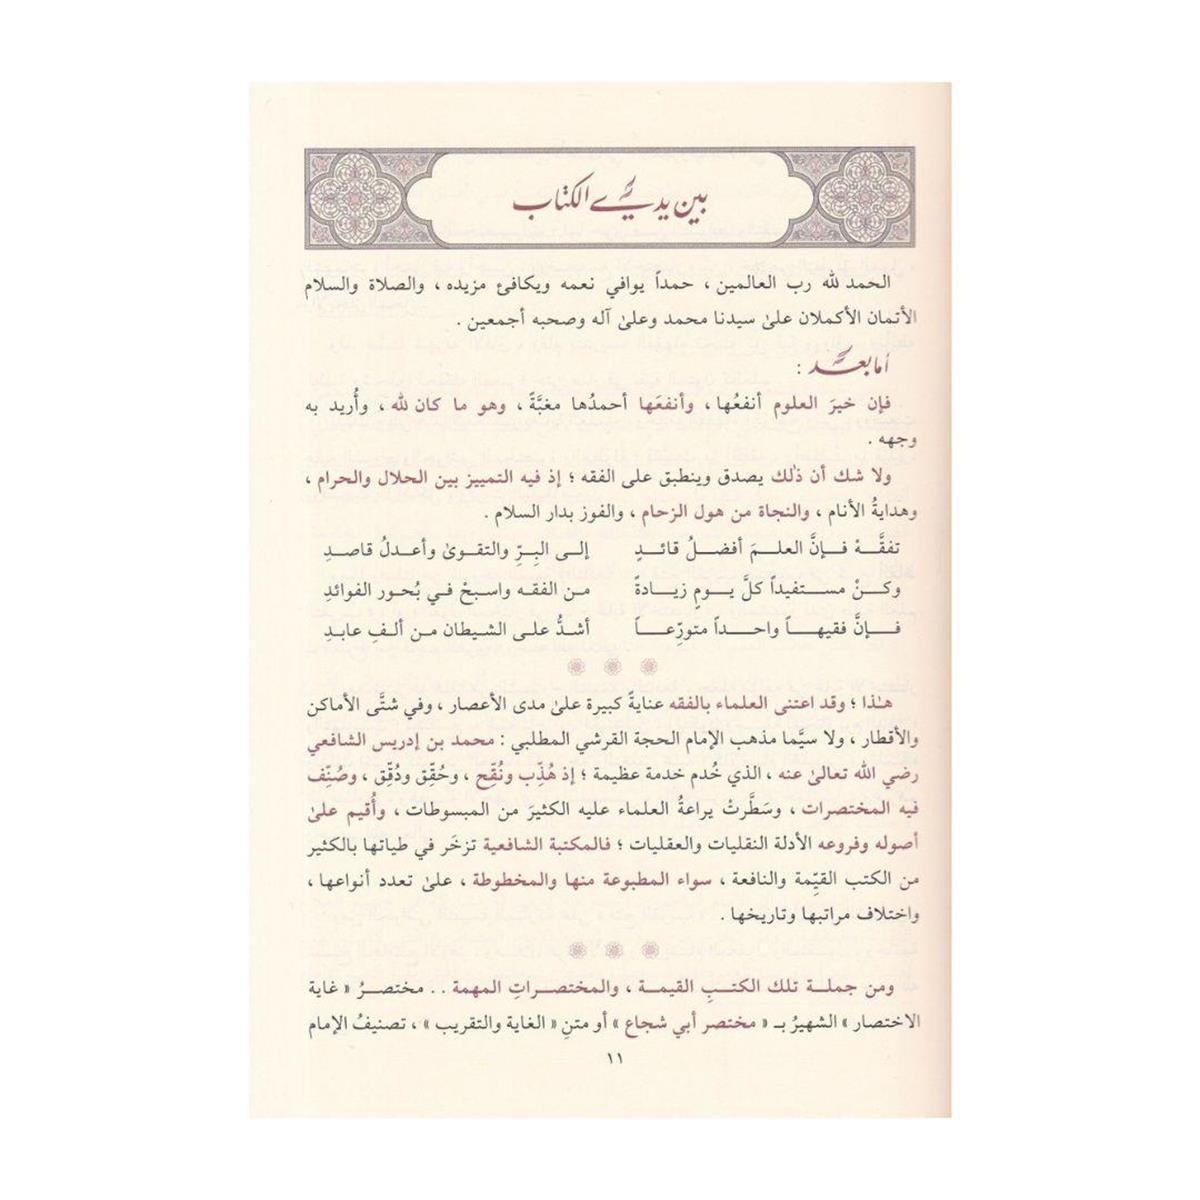 بين يدي الكتاب
الحمد لله رب العالمين ، حمداً يوافي نعمه ويكافئ مزيده ، والصلاة والسلام
الأتمان الأكملان علىٰ سيدنا محمد وعلىٰ آله وصحبه أجمعين .
أما بعد :
فإن خيرَ العلوم أنفعُها ، وأنفعَها أحمدُها مغبَّةً ، وهو ما كان لله ، وأُريد به
وجهه .
ولا شك أن ذٰلك يصدق وينطبق على الفقه ؛ إذ فيه التمييز بين الحلال والحرام ،
وهدايةُ الأنام ، والنجاة من هول الزحام ، والفوز بدار السلام .
تفقَّهْ فإنَّ العلمَ أفضلُ قائدٍ إلى البِرِّ والتقوىٰ وأعدلُ قاصدِ
وكنْ مستفيداً كلَّ يومٍ زيادةً من الفقه واسبحْ في بُحور الفوائدِ
فإنَّ فقيهاً واحداً متورِّعاً أشدُّ على الشيطان من ألفِ عابدِ
هٰذا ؛ وقد اعتنى العلماء بالفقه عنايةً كبيرة علىٰ مدى الأعصار ، وفي شتَّى الأماكن
والأقطار ، ولا سيَّما مذهب الإمام الحجة القرشي المطلبي : محمد بن إدريس الشافعي
رضي الله تعالىٰ عنه ، الذي خُدم خدمة عظيمة ؛ إذ هُذِّب ونُقِّح ، وحُقِّق ودُقِّق ، وصُنِّف
فيه المختصرات ، وسَطَّرتْ يراعةُ العلماء عليه الكثيرَ من المبسوطات ، وأُقيم علىٰ
أصوله وفروعه الأدلة النقليات والعقليات ؛ فالمكتبة الشافعية تزخَر في طياتها بالكثير
من الكتب القيِّمة والنافعة ، سواء المطبوعة منها والمخطوطة ، علىٰ تعدد أنواعها ،
واختلاف مراتبها وتاريخها .
ومن جملة تلك الكتبِ القيمة ، والمختصراتِ المهمة . . مختصرُ « غاية
الاختصار » الشهيرُ بـ « مختصر أبي شجاع » أو متنِ « الغاية والتقريب » ، تصنيفُ الإمام
١١